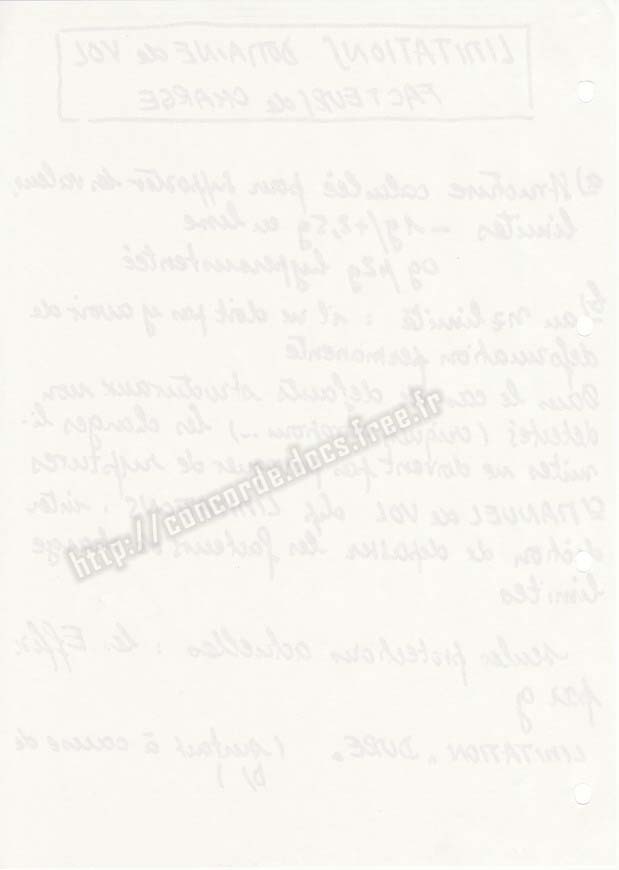 LIMITATIONS DOMAINE de VOL
FACTEURS de CHARGE
a) Structure calculée pour supporter les valeurs
limites - 1g/+2,5g en lisse
0g 2g hypersustenté
b) au nz limite : il ne doit pas y avoir de
déformation permanente
Dans le cas de défauts structuraux non
détectés (criques ...) les charges li-
mites ne doivent pas de ruptures
c) MANUEL de VOL chp LIMITATIONS : inter-
diction de dépasser les facteurs de charge
limites
seules protections actuelles : les Effix
par g
LIMITATION "DURE" (surtout à cause de
b) )
http://concorde.docs.free.fr